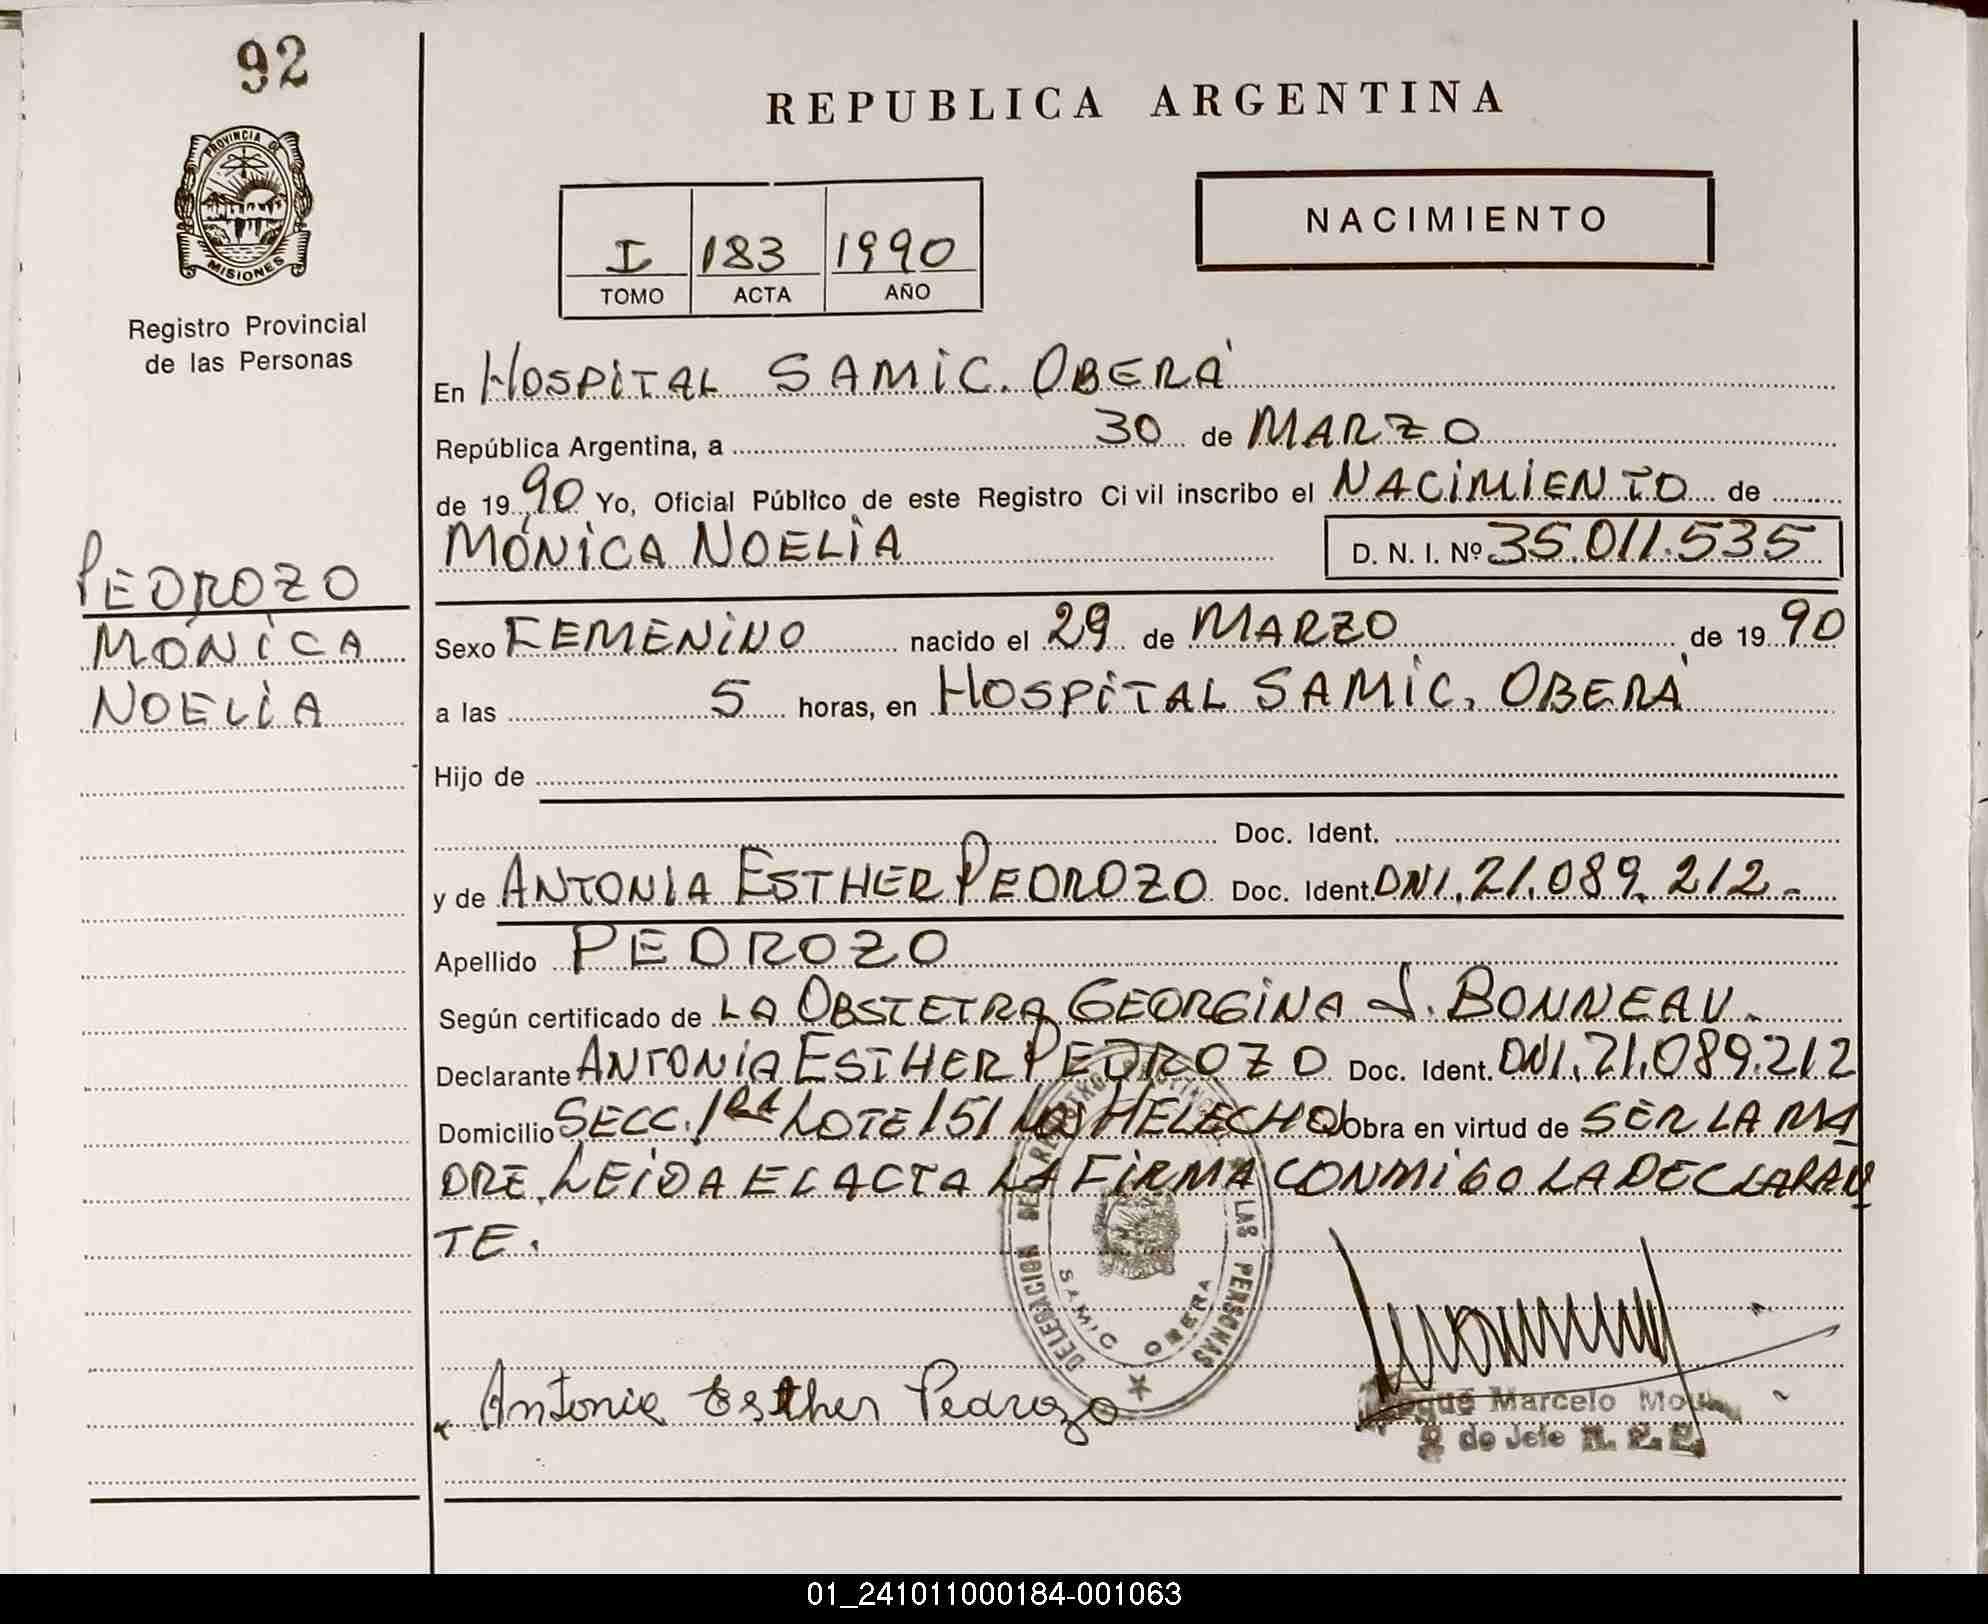 92
PROVINCIA DE
MISIONES
Registro Provincial
de las Personas
PEDROZO
MONICA
NOELIA
REPUBLICA ARGENTINA
I 183 1990
TOMO ACTA AÑO
NACIMIENTO
En HOSPITAL SAMIC. OBERÁ
República Argentina, a 30 de MARZO
de 1990 Yo, Oficial Público de este Registro Civil inscribo el NACIMIENTO de
MONICA NOELIA D. N. I. Nº 35.011.535
Sexo FEMENINO nacido el 29 de MARZO de 1990
a las 5 horas, en HOSPITAL SAMIC, OBERÁ
Hijo de
Doc. Ident.
y de ANTONIA ESTHER PEDROZO Doc. Ident. DNI. 21.089.212.-
Apellido PEDROZO
Según certificado de LA OBSTETRA GEORGINA J. BONNEAU.
Declarante ANTONIA ESTHER PEDROZO Doc. Ident. DNI. 21.089.212
Domicilio SECC. 1RA LOTE 151 LOS HELECHOS obra en virtud de SER LA MA
DRE. LEIDA EL ACTA LA FIRMA CONMIGO LA DECLARAN
TE.
DELEGACION DEL REGISTRO PROVINCIAL DE LAS PERSONAS
SAMIC OBERA
Antonia Esther Pedrozo
Marcelo
de Jefe R. P. P.
01_241011000184-001063